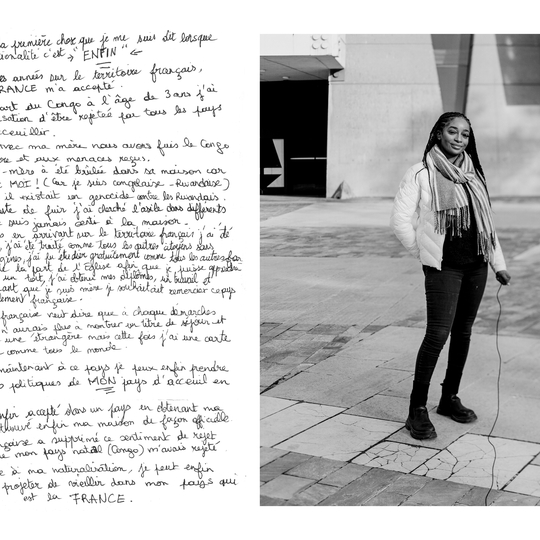 a première chose que je me suis dit lorsque
ionalité c'est, "ENFIN" ←
es années sur le territoire français,
RANCE m'a accepté.
art du Congo à l'âge de 3 ans j'ai
sation d'être rejetée par tous les pays
ccueillir.
avec ma mère nous avons fuis le Congo
re et aux menaces reçus.
-mère à été brûlée dans sa maison car
MOI! (Car je suis congolaise-Rwandaise)
il existait en genocide contre les Rwandais.
ste de fuir j'ai cherché l'asile dans différents
suis jamais senti à la maison.
s en arrivant sur le territoire français j'ai été
, j'ai été traité comme tous les autres citoyens sans
gines, j'ai pu étudier gratuitement comme tous les autres
la part de l'Eglise afin que je puisse apprendre
un toit, j'ai obtenu mes diplômes, un travail et
ant que je suis mère je souhaitait remercier ce pays
lement française.
française veut dire que à chaque démarches
n'aurais plus à montrer un titre de séjour et
une étrangère mais cette fois j'ai une carte
comme tous le monde.
maintenant à ce pays je peux enfin prendre
s politiques de MON pays d'acceuil en
nfin accepté dans un pays en obtenant ma
trouvé enfin ma maison de façon officielle
çaise a supprimé ce sentiment de rejet
ue mon pays natal (Congo) m'avais rejeté.
e à ma naturalisation, je peut enfin
projeter de vieillir dans mon pays qui
est la FRANCE.